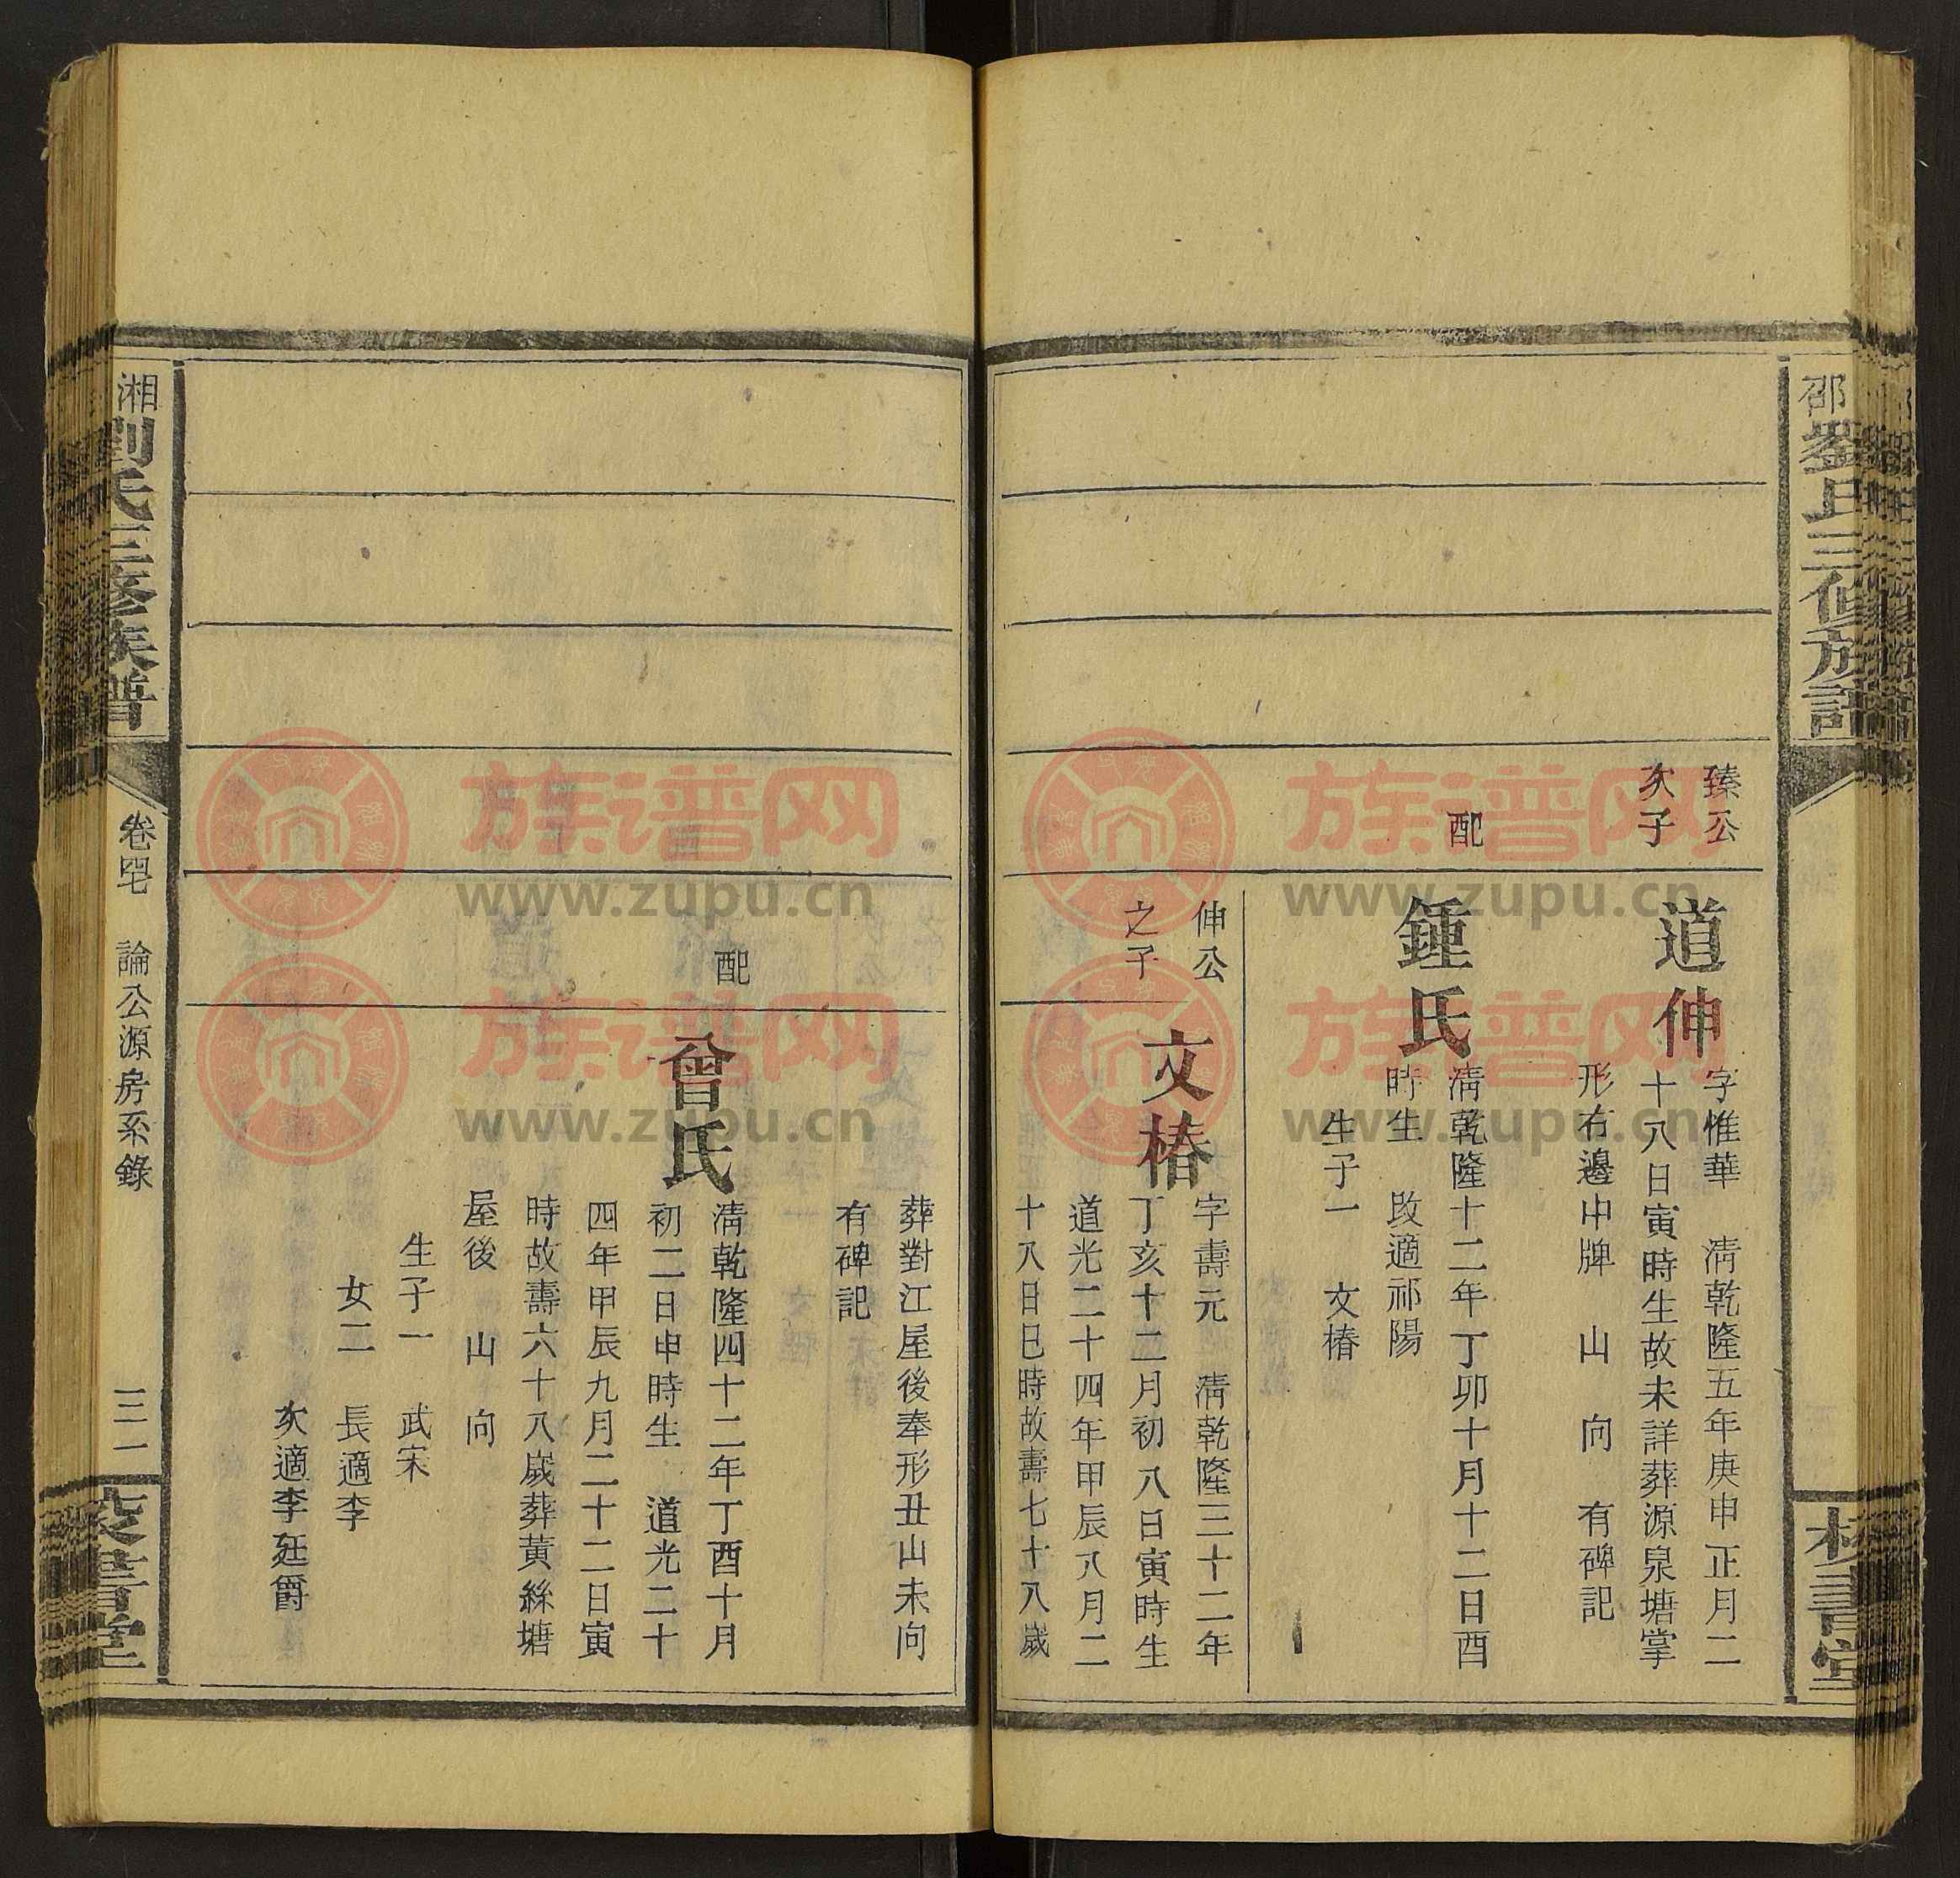 邵劉氏三修族譜
臻公
次子
道伸
字惟華　清乾隆五年庚申正月二
十八日寅時生故未詳葬源泉塘掌
形右邊中牌　山　向　有碑記
配
鍾氏
清乾隆十二年丁卯十月十二日酉
時生　改適祁陽
生子一　文椿
伸公
之子
文椿
字壽元　清乾隆三十二年
丁亥十二月初八日寅時生
道光二十四年甲辰八月二
十八日巳時故壽七十八歲
葬對江屋後奉形丑山未向
有碑記
配
曾氏
清乾隆四十二年丁酉十月
初二日申時生　道光二十
四年甲辰九月二十二日寅
時故壽六十八歲葬黃絲塘
屋後　山　向
生子一　武宋
女二　長適李
次適李廷爵
湘劉氏三修族譜
卷四七　論公源房系錄
三一
書堂
族谱网
www.zupu.cn
族谱网
www.zupu.cn
族谱网
www.zupu.cn
族谱网
www.zupu.cn